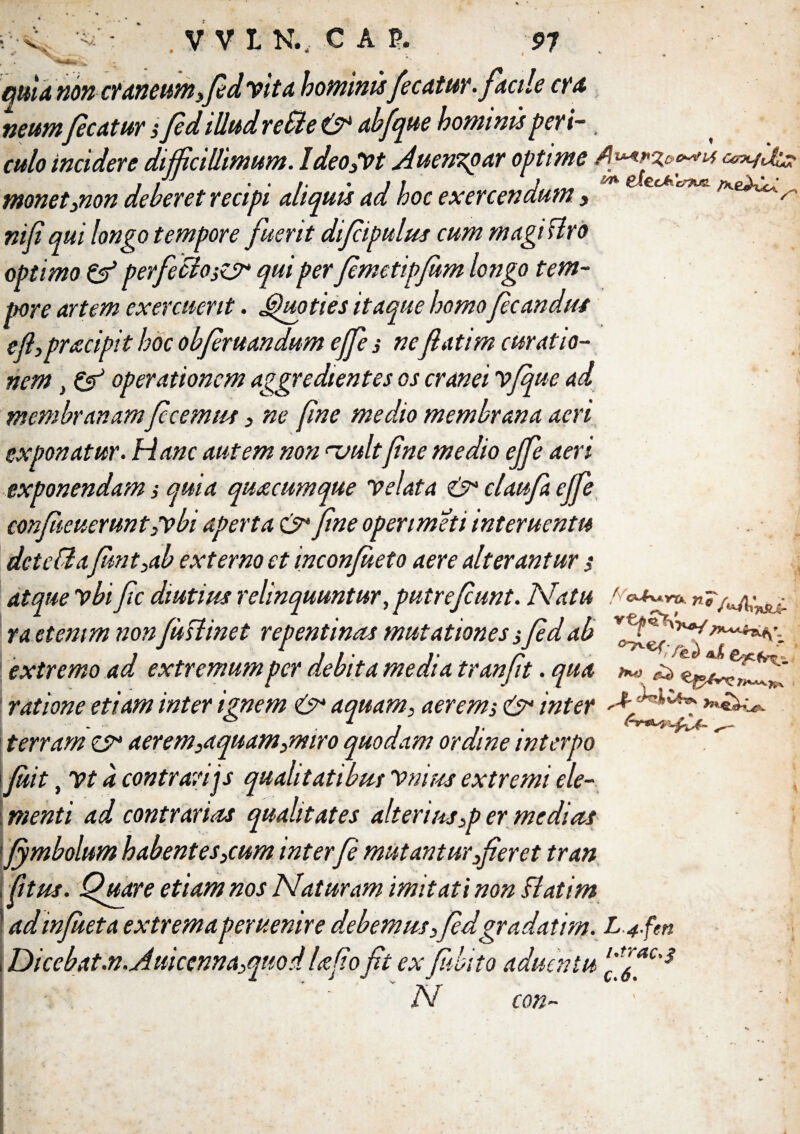 VVLN. CAP. 97
quia non craneum, sed vita hominis secatur. facile cra
neum secatur; sed illud recte & absque hominis peri-
culo incidere difficillimum. Ideo, vt Auenzoar optime
monet, non deberet recipi aliquis ad hoc exercendum,
nisi qui longo tempore fuerit discipulus cum magistro
optimo & perfecto; & qui per semetipsum longo tem-
pore artem exercuerit. Quoties itaque homo secandus
est, præcipit hoc obseruandum esse; ne statim curatio-
nem, & operationem aggredientes os cranei vsque ad
membranam secemus, ne sine medio membrana aeri
exponatur. Hanc autem non vult sine medio esse aeri
exponendam; quia quæcumque velata & clausa esse
consueuerunt, vbi aperta & sine operimēti interuentu
detecta sunt, ab externo et inconsueto aere alterantur;
atque vbi sic diutius relinquuntur, putrescunt. Natu
ra etenim non sustinet repentinas mutationes; sed ab
extremo ad extremum per debita media transit. qua
ratione etiam inter ignem & aquam, aerem; & inter
terram & aerem, aquam, miro quodam ordine interpo
suit, vt à contrarijs qualitatibus vnius extremi ele-
menti ad contrarias qualitates alterius, per medias
symbolum habentes, cum inter se mutantur, fieret tran
situs. Quare etiam nos Naturam imitati non statim
ad insueta extrema peruenire debemus, sed gradatim.
L. 4. fen
Dicebat.n. Auicenna, quod læsio fit ex subito aduentu
1. trac. 3
c. 6.
N con-